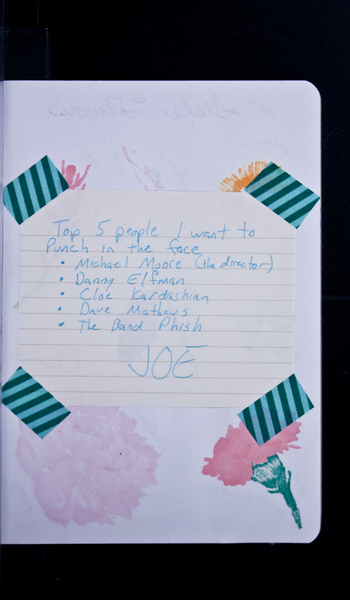 Top 5 people I want to
Punch in the face
• Michael Moore (the director)
• Danny Elfman
• Cloe Kardashian
• Dave Mathews
• The Band Phish
JOE